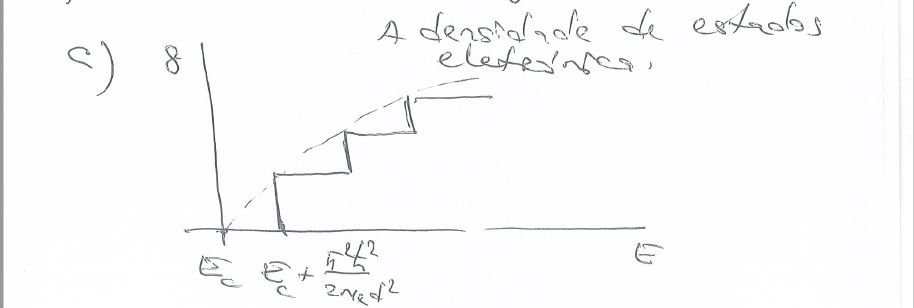 A densidade de estados
eletrônica.
c) g
E
E_c E_c + π²ħ²
2m_e d²